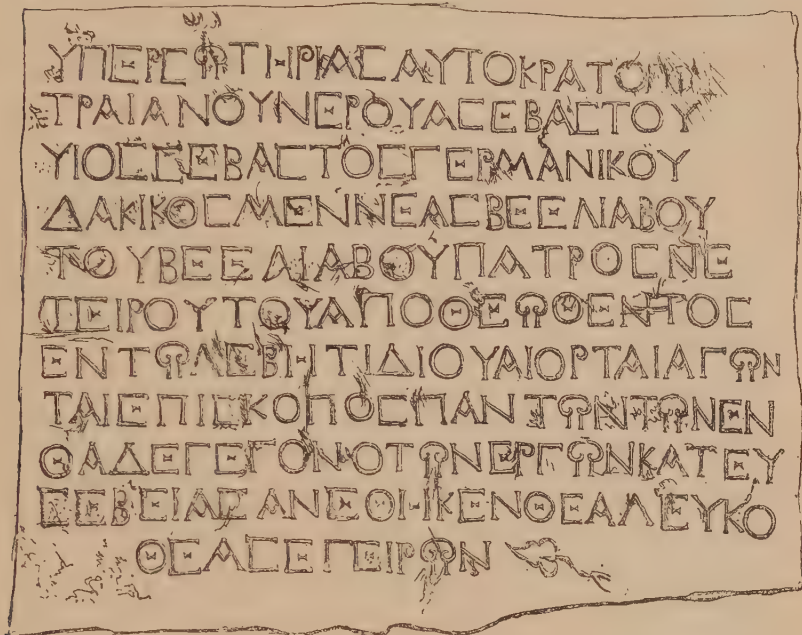 ΥΠΕΡΣΩΤΗΡΙΑΣΑΥΤΟΚΡΑΤΟ
ΤΡΑΙΑΝΟΥΝΕΡΟΥΑΣΕΒΑΣΤΟΥ
ΥΙΟΣΣΕΒΑΣΤΟΣΓΕΡΜΑΝΙΚΟΥ
ΔΑΚΙΚΟΣΜΕΝΝΕΑΣΒΕΕΛΙΑΒΟΥ
ΤΟΥΒΕΕΛΙΑΒΟΥΠΑΤΡΟΣΝΕ
ΤΕΙΡΟΥΤΟΥΑΠΟΘΕΩΘΕΝΤΟΣ
ΕΝΤΩΛΕΒΗΤΙΔΙΟΥΑΙΟΡΤΑΙΑΓΩΝ
ΤΑΙΕΠΙΣΚΟΠΟΣΠΑΝΤΩΝΤΩΝΕΝ
ΘΑΔΕΓΕΓΟΝΟΤΩΝΕΡΓΩΝΚΑΤΕΥ
ΣΕΒΕΙΑΣΑΝΕΘΗΚΕΝΘΕΑΛΕΥΚΟ
ΘΕΑΣΕΓΕΙΡΩΝ